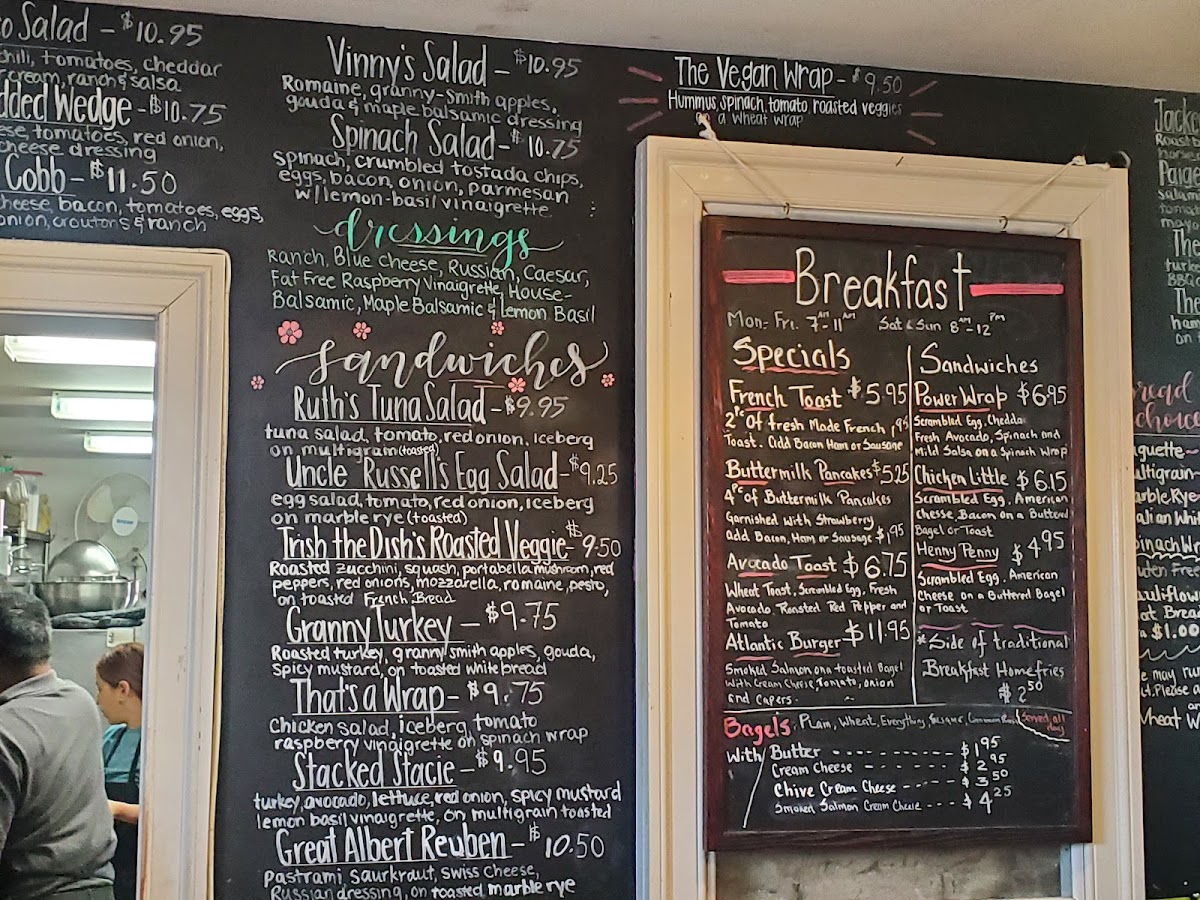 o Salad - $10.95
chili, tomatoes, cheddar
cream, ranch & salsa
dded Wedge - $10.75
ese, tomatoes, red onion,
cheese dressing
Cobb - $11.50
heese, bacon, tomatoes, eggs,
onion, croutons & ranch
Vinny's Salad - $10.95
Romaine, granny-smith apples,
gouda & maple balsamic dressing
Spinach Salad - $10.75
spinach, crumbled tostada chips,
eggs, bacon, onion, parmesan
w/ lemon-basil vinaigrette
dressings
Ranch, Blue cheese, Russian, Caesar,
Fat Free Raspberry Vinaigrette, House-
Balsamic, Maple Balsamic & Lemon Basil
Sandwiches
Ruth's Tuna Salad - $9.95
tuna salad, tomato, red onion, iceberg
on multigrain (toasted)
Uncle Russell's Egg Salad - $9.25
egg salad, tomato, red onion, iceberg
on marble rye (toasted)
Trish the Dish's Roasted Veggie - $9.50
Roasted zucchini, squash, portabella mushroom, red
peppers, red onions, mozzarella, romaine, pesto,
on toasted French Bread
Granny Turkey - $9.75
Roasted turkey, granny smith apples, gouda,
spicy mustard, on toasted white bread
That's a Wrap - $9.75
chicken salad, iceberg, tomato
raspberry vinaigrette on spinach wrap
Stacked Stacie - $9.95
turkey, avocado, lettuce, red onion, spicy mustard
lemon basil vinaigrette, on multigrain toasted
Great Albert Reuben - $10.50
pastrami, saurkraut, swiss cheese,
Russian dressing, on toasted marble rye
The Vegan Wrap - $9.50
Hummus, spinach, tomato, roasted veggies
on a wheat wrap
Breakfast
Mon- Fri. 7AM-11AM Sat & Sun 8AM-12PM
Specials
French Toast $5.95
2Pc of fresh Made French
Toast. add Bacon Ham or Sausage 1.95
Buttermilk Pancakes $5.25
4Pc of Buttermilk Pancakes
Garnished with Strawberry
add Bacon, Ham, or Sausage $1.95
Avocado Toast $6.75
Wheat Toast, Scrambled Egg, Fresh
Avocado Roasted Red Pepper and
Tomato
Atlantic Burger $11.95
Smoked Salmon on a toasted Bagel
with Cream Cheese, Tomato, onion
and Capers.
Sandwiches
Power Wrap $6.95
Scrambled Egg, Chedda
Fresh Avocado, Spinach and
Mild Salsa on a Spinach Wrap
Chicken Little $6.15
Scrambled Egg, American
Cheese, Bacon on a Buttered
Bagel or Toast
Henny Penny $4.95
Scrambled Egg, American
Cheese on a Buttered Bagel
or Toast
*Side of traditional
Breakfast Homefries
$2.50
Bagels: Plain, Wheat, Everything, Sesame, Cinnamon
Served all day
With Butter - - - $1.95
Cream Cheese - - - $2.95
Chive Cream Cheese - - - $3.50
Smoked Salmon Cream Cheese - - - $4.25
Jack
Roast
horse
Paige
salam
toma
mayo
The
turk
BBQ
Th
ham
on
read
choic
guette
ultigrain
arble Rye
alian Whi
pinach Wr
uten Free
auliflow
at Brea
a $1.00
e may ru
d. Please
Wheat W